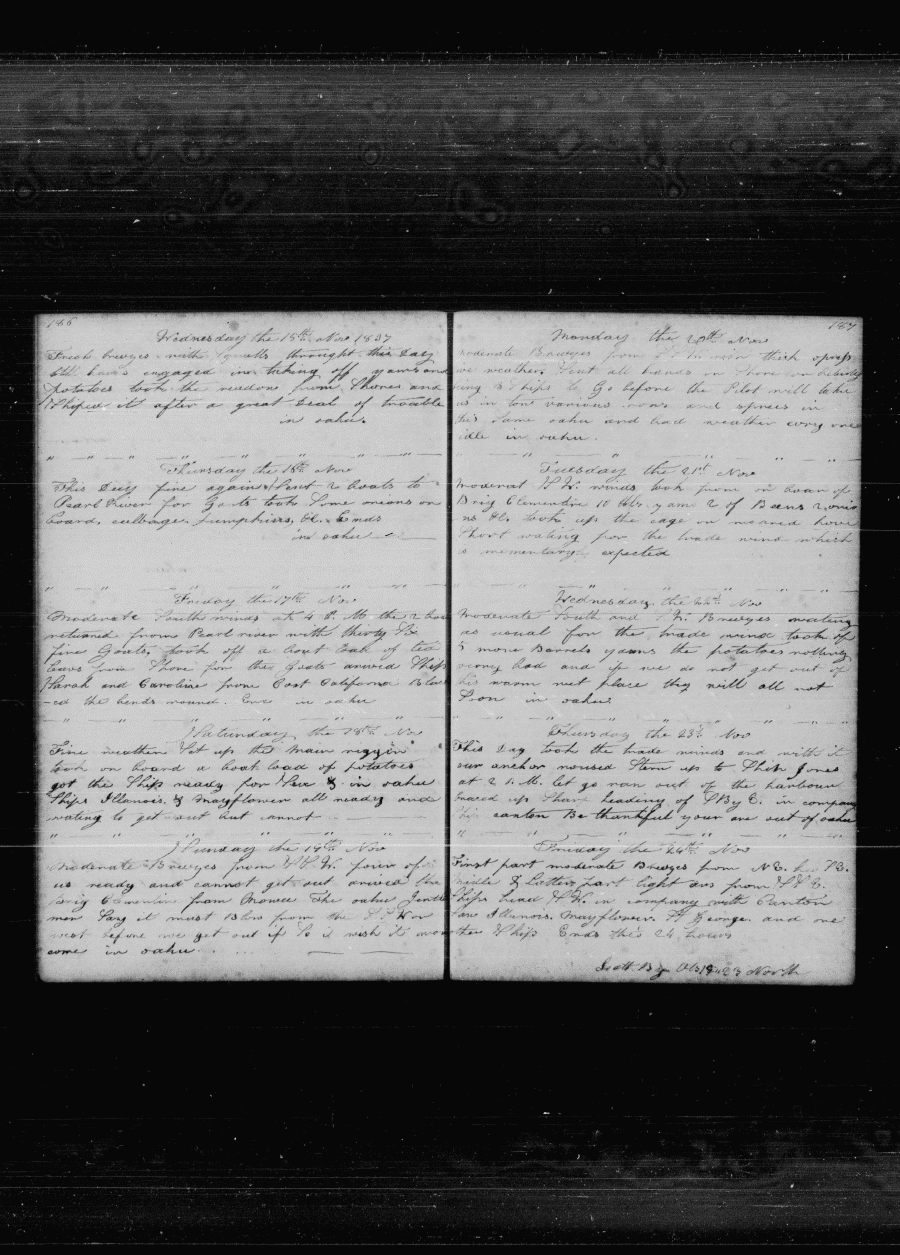 186
Wednesday the 15th Nov 1837
Fresh breezes with squalls throught this Day
all hands engaged in taking off yams and
potatoes took the rudder from Shore and
Shiped it after a great Deal of trouble
in oahu.
Thursday the 16th Nov
This Day fine again Sent 2 boats to
Pearl River for Goats took Some onions on
board, cabbage, pumpkins, &c. Ends
in oahu
Friday the 17th Nov
Moderate South winds at 4 P. M. the 2 boats
returned from Pearl river with thirty
five Goats, took off a boat load of tea
leaves from Shore for the Goats arived Ships
Sarah and Caroline from East California
the bends round. Ends in oahu
Saturday the 18th Nov
Fine weather Set up the main riggin
took on board a boat load of potatoes
got the Ship ready for Sea & in oahu
Ships Illinois & Mayflower all ready and
wating to get out but cannot
Sunday the 19th Nov
Moderate Breezes from S.W. four of
us ready and cannot get out arived the
Brig Clementin from Mowee The oahu Gentle
men Say it must Blow from the
west before we get out if So it wish it wo
come in oahu
187
Monday the 20th Nov
Moderate Breezes from thick opress
ive weather. Sent all hands on Shore
Ships to Go before the Pilot will take
us in tow various and in
this Same oahu and bad weather every one
idle in oahu.
Tuesday the 21st Nov
Moderat S.W. winds took from on board of
Brig Clemendine 10 bbls yams 2 of Beans 2 onio
ns &c. took up the and
Short wating for the trade wind which
is momentarly expected
Wednesday the 22nd Nov
Moderate South and S.W. Breezes wating
as usual for the trade wind took of
5 more Barrels yams the potatoes rotting
very bad and if we do not get out of
this warm wet place they will all rot
Soon in oahu
Thursday the 23d Nov
This Day took the trade winds and with it
our anchor roused Stern up to Ship Jones
at 2 P.M. let go ran out of the harbour
braced up Sharp heading of S By E. in company
Ship canton Be thankful your are out of oahu
Friday the 24th Nov
First part moderate Breezes from N.E.
Middle & Latter part light airs from S.E.
Ships head S.W. in company with Canton
Saw Illinois. Mayflower. George. and one
other Ship. Ends this 24 hours
Latt. By Ob 19.23 North